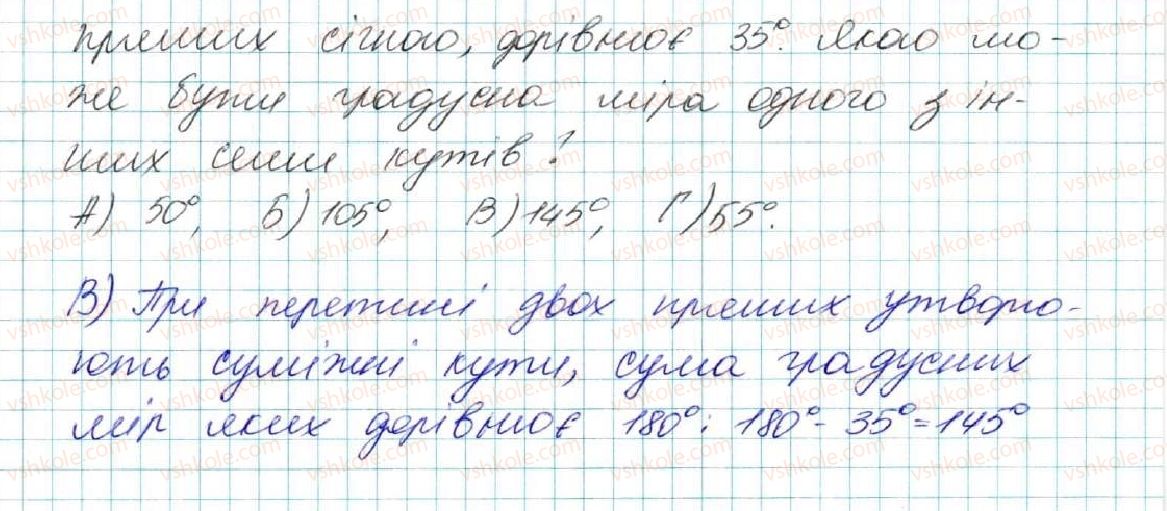 прямих січною, дорівнює 35°. Якою мо-
же бути градусна міра одного з ін-
ших семи кутів?
А) 50°, Б) 105°, В) 145°, Г) 55°.
В) При перетині двох прямих утворю-
ють суміжні кути, сума градусних
мір яких дорівнює 180°; 180° - 35° = 145°